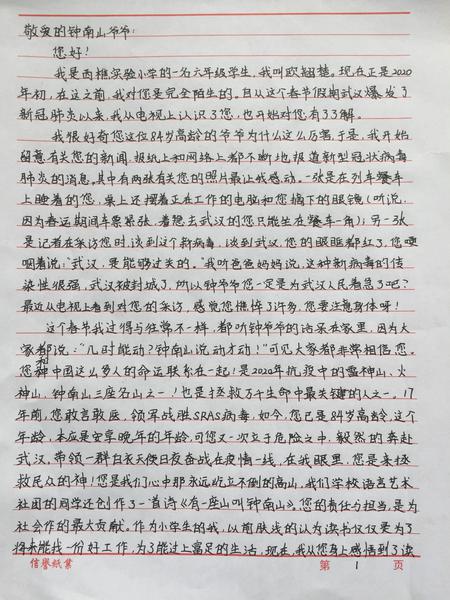 敬爱的钟南山爷爷：
您好！
我是西樵实验小学的一名六年级学生，我叫欧翘楚。现在正是2020
年初，在这之前，我对您是完全陌生的。自从这个春节假期武汉爆发了
新冠肺炎以来，我从电视上认识了您，也开始对您有了了解。
我很好奇您这位84岁高龄的爷爷为什么这么厉害，于是，我开始
留意有关您的新闻。报纸上和网络上都不断地报道新型冠状病毒
肺炎的消息。其中有两张有关您的照片最让我感动。一张是在列车餐车
上睡着的您，桌上还摆着正在工作的电脑和您摘下的眼镜（听说，
因为春运期间车票紧张，着急去武汉的您只能坐在餐车一角）；另一张
是记者在采访您时，谈到这个新病毒，谈到武汉，您的眼眶都红了，您哽
咽着说：“武汉，是能够过关的。”我听爸爸妈妈说，这种新病毒的传
染性很强，武汉被封城了，所以钟爷爷您一定是为武汉人民着急了吧？
最近从电视上看到对您的采访，感觉您憔悴了许多，您要注意身体呀！
这个春节我过得与往常不一样，都听钟爷爷的话呆在家里，因为大
家都说：“几时能动？钟南山说动才动！”可见大家都非常相信您。
您和中国这么多人的命运联系在一起！是2020年抗疫中的雷神山、火
神山、钟南山三座名山之一！也是拯救万千生命中最关键的人之一。17
年前，您敢言敢医，领军战胜SRAS病毒，如今，您已是84岁高龄，这个
年龄，本应是安享晚年的年龄，可您又一次立于危险之中，毅然的奔赴
武汉，带领一群白衣天使日夜奋战在疫情一线，在我眼里，您是来拯
救民众的神！您是我们心中那永远屹立不倒的高山，我们学校语言艺术
社团的同学还创作了一首诗《有一座山叫钟南山》。您的责任力担当，是为
社会作的最大贡献。作为小学生的我，以前肤浅的认为读书仅仅是为了
将来能找一份好工作，为了能过上富足的生活，现在，我从您身上感悟到了读
信誉纸业
第 1 页